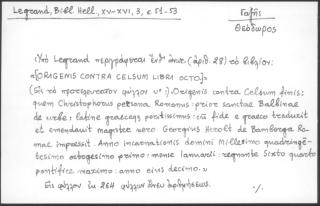 Legrand, Bibl. Hell., XV-XVI, 3, σ 51-53
Γαζῆς
Θεόδωρος
Ὁ Legrand περιγράφει ἐπ' ἀριθ. 28) τὸ βιβλίον:
«[ORIGENIS CONTRA CELSUM LIBRI OCTO]»
(Εἰς τὸ προτελευταῖον φύλλον :) Origenis contra Celsum finis:
quem Christophorus persona Romanus: prior sanctae Balbinae
de urbe: latine graecus peritissimus: cum fide e graeco traduxit
et emendauit magister uero Georgius Herolt de Bamberga Ro-
mae impressit. Anno incarnationis domini Millesimo quadringē-
tesimo octogesimo primo: mense Ianuarii: regnante Sixto quarto
pontifice maximo: anno eius decimo.»
Εἰς φύλλον 264 φύλλων ἄνευ ἀριθμήσεως.
·/.